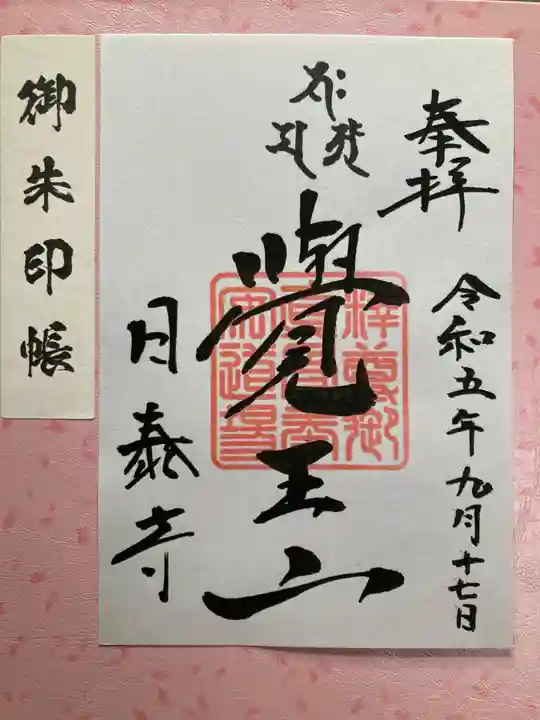 奉拝
令和五年九月十七日
覺王山
日泰寺
御朱印帳